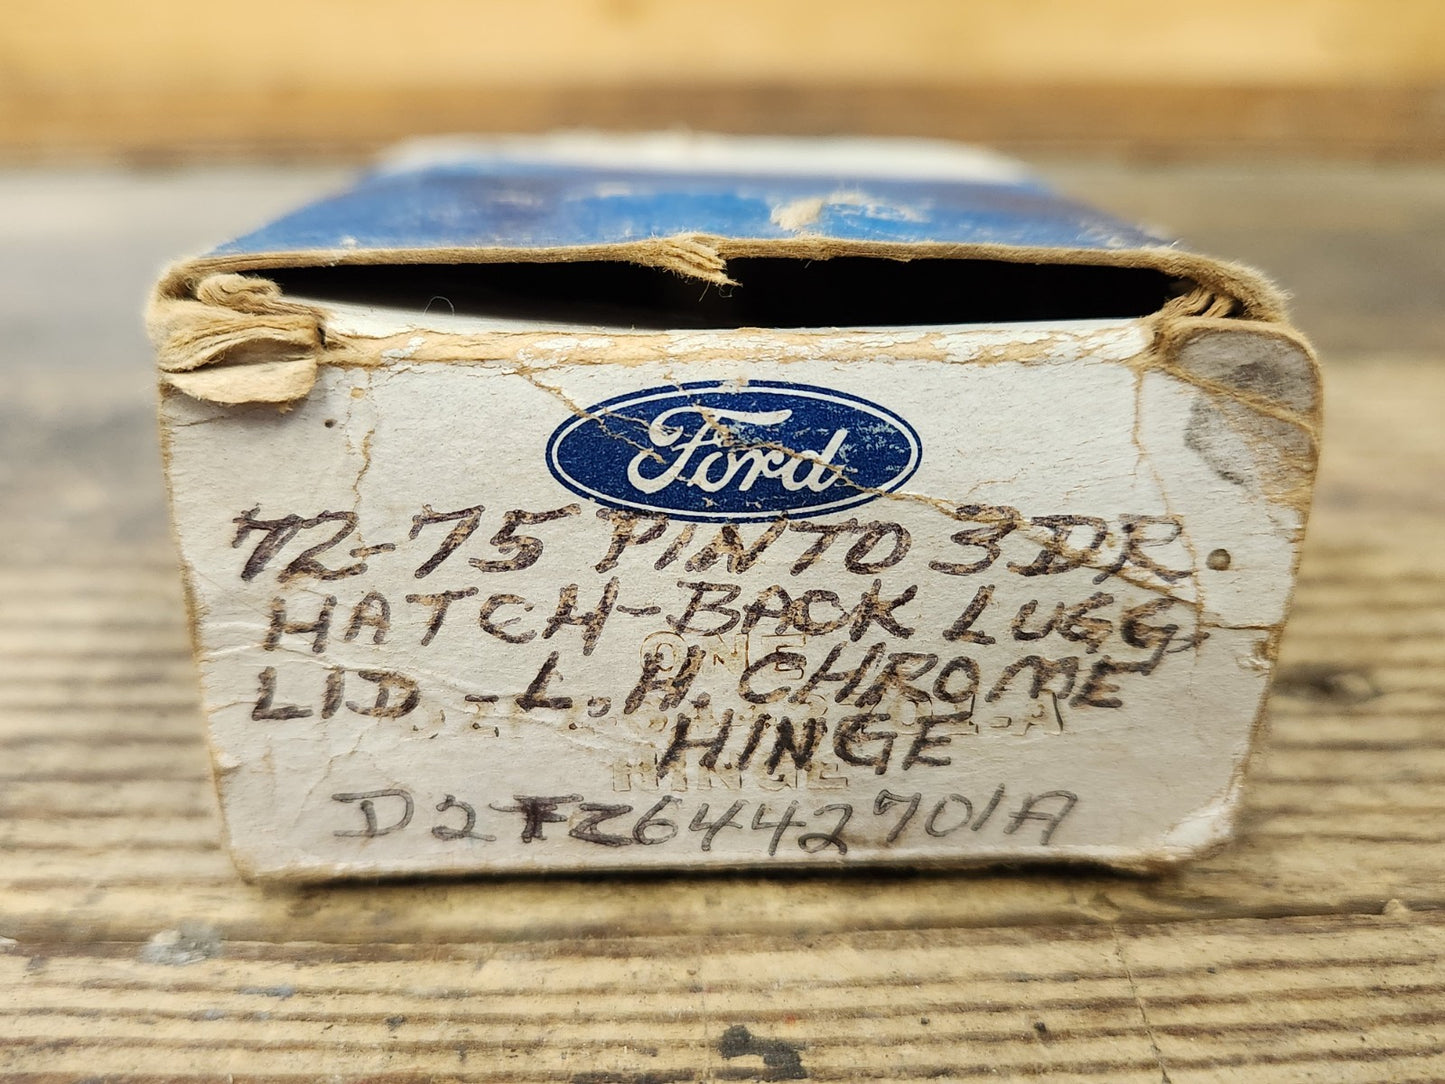 Ford
72-75 PINTO 3DR.
HATCH-BACK LUGG.
ONE
LID - L.H. CHROME
HINGE
HINGE
D2FZ6442701A